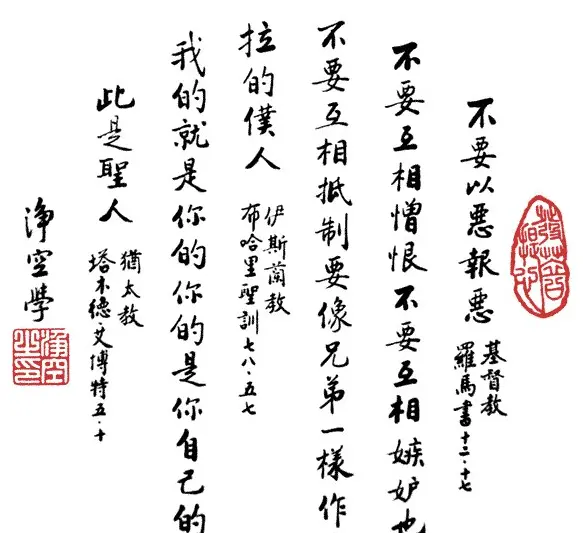 不要以惡報惡
基督教
羅馬書十二·十七
不要互相憎恨不要互相嫉妒也
不要互相抵制要像兄弟一樣作
拉的僕人
伊斯蘭教
布哈里聖訓七八·五七
我的就是你的你的是你自己的
此是聖人
猶太教
塔木德·艾博特五·十
淨空學
淨空之印